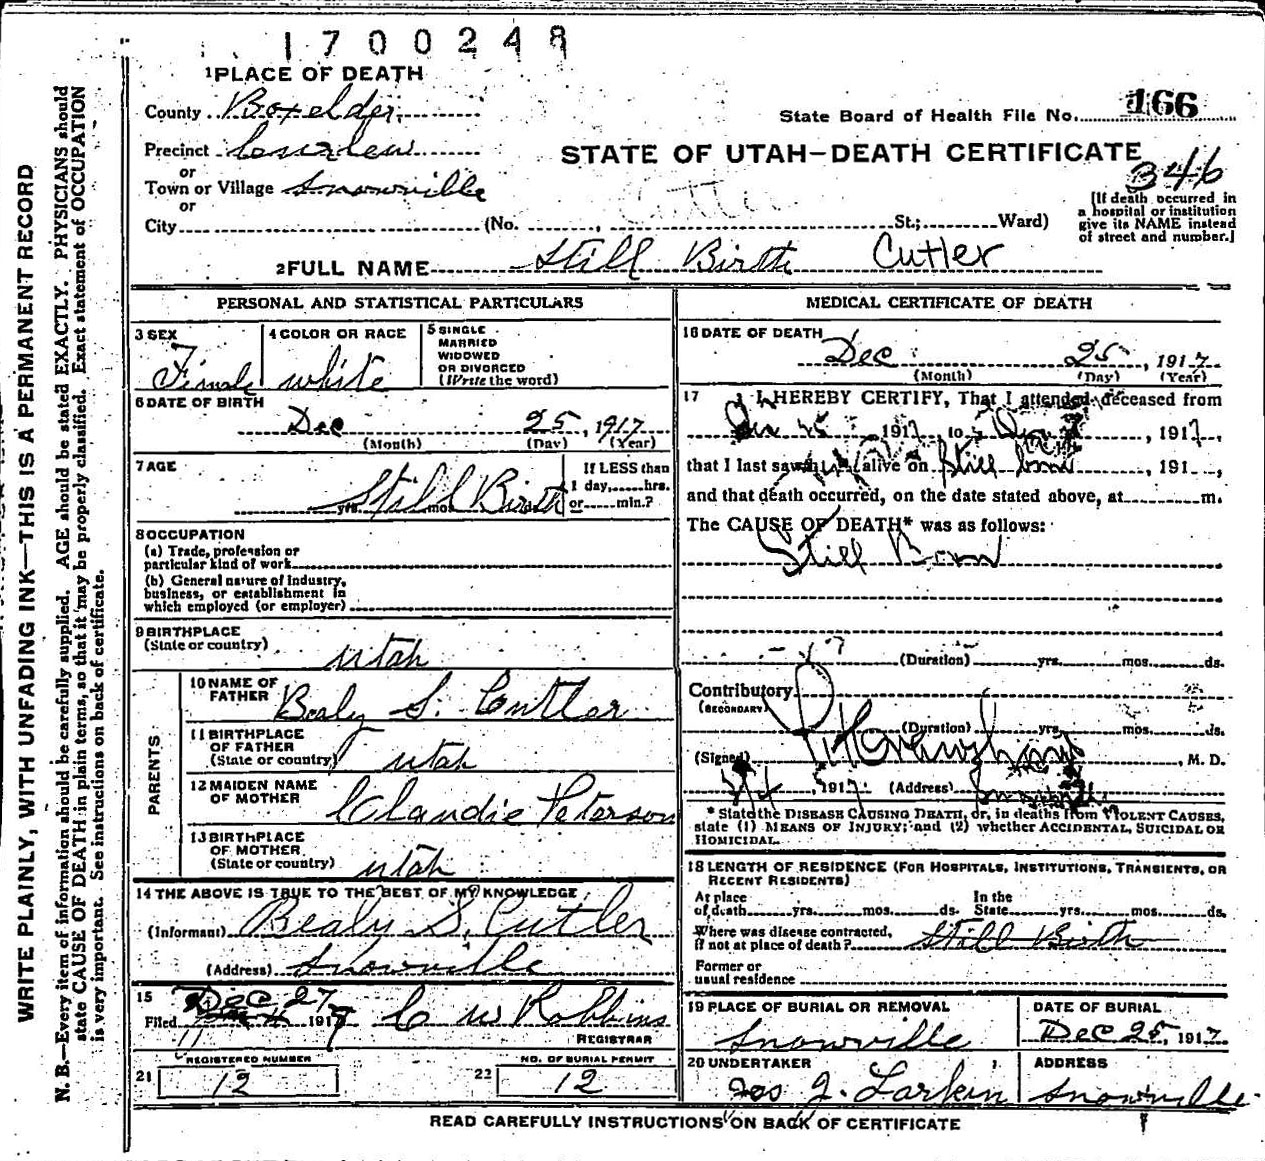 1700248
1 PLACE OF DEATH
County Boxelder
State Board of Health File No. 166
Precinct Curlew
STATE OF UTAH—DEATH CERTIFICATE
346
or
Town or Village Snowville
or
City (No. , St.; Ward)
[If death occurred in a hospital or institution give its NAME instead of street and number.]
2 FULL NAME Still Birth Cutler
PERSONAL AND STATISTICAL PARTICULARS
3 SEX
Female
4 COLOR OR RACE
white
5 SINGLE
MARRIED
WIDOWED
OR DIVORCED
(Write the word)
6 DATE OF BIRTH
Dec 25, 1917
(Month) (Day) (Year)
7 AGE
Still Birth
yrs. mos.
If LESS than
1 day, hrs.
or min.?
8 OCCUPATION
(a) Trade, profession or
particular kind of work
(b) General nature of industry,
business, or establishment in
which employed (or employer)
9 BIRTHPLACE
(State or country)
Utah
PARENTS
10 NAME OF
FATHER Bealy S. Cutler
11 BIRTHPLACE
OF FATHER
(State or country) Utah
12 MAIDEN NAME
OF MOTHER Claudie Peterson
13 BIRTHPLACE
OF MOTHER
(State or country) Utah
14 THE ABOVE IS TRUE TO THE BEST OF MY KNOWLEDGE
(Informant) Bealy S. Cutler
(Address) Snowville
15 Dec 27
Filed 1917 C W Robbins
REGISTRAR
REGISTERED NUMBER
21 12
NO. OF BURIAL PERMIT
22 12
MEDICAL CERTIFICATE OF DEATH
16 DATE OF DEATH
Dec 25, 1917
(Month) (Day) (Year)
17 I HEREBY CERTIFY, That I attended deceased from
1917, to , 1917,
that I last saw alive on Still born , 191 ,
and that death occurred, on the date stated above, at m.
The CAUSE OF DEATH* was as follows:
Still Born
(Duration) yrs. mos. ds.
Contributory
(SECONDARY)
(Duration) yrs. mos. ds.
(Signed) , M. D.
, 1917 (Address)
* State the DISEASE CAUSING DEATH, or, in deaths from VIOLENT CAUSES,
state (1) MEANS OF INJURY; and (2) whether ACCIDENTAL, SUICIDAL OR
HOMICIDAL.
18 LENGTH OF RESIDENCE (FOR HOSPITALS, INSTITUTIONS, TRANSIENTS, OR
RECENT RESIDENTS)
At place In the
of death yrs. mos. ds. State yrs. mos. ds.
Where was disease contracted,
if not at place of death? Still Birth
Former or
usual residence
19 PLACE OF BURIAL OR REMOVAL
Snowville
DATE OF BURIAL
Dec 25, 1917
20 UNDERTAKER
Jos J. Larkin
ADDRESS
Snowville
READ CAREFULLY INSTRUCTIONS ON BACK OF CERTIFICATE
WRITE PLAINLY, WITH UNFADING INK—THIS IS A PERMANENT RECORD
N. B.—Every item of information should be carefully supplied. AGE should be stated EXACTLY. PHYSICIANS should
state CAUSE OF DEATH in plain terms, so that it may be properly classified. Exact statement of OCCUPATION
is very important. See instructions on back of certificate.